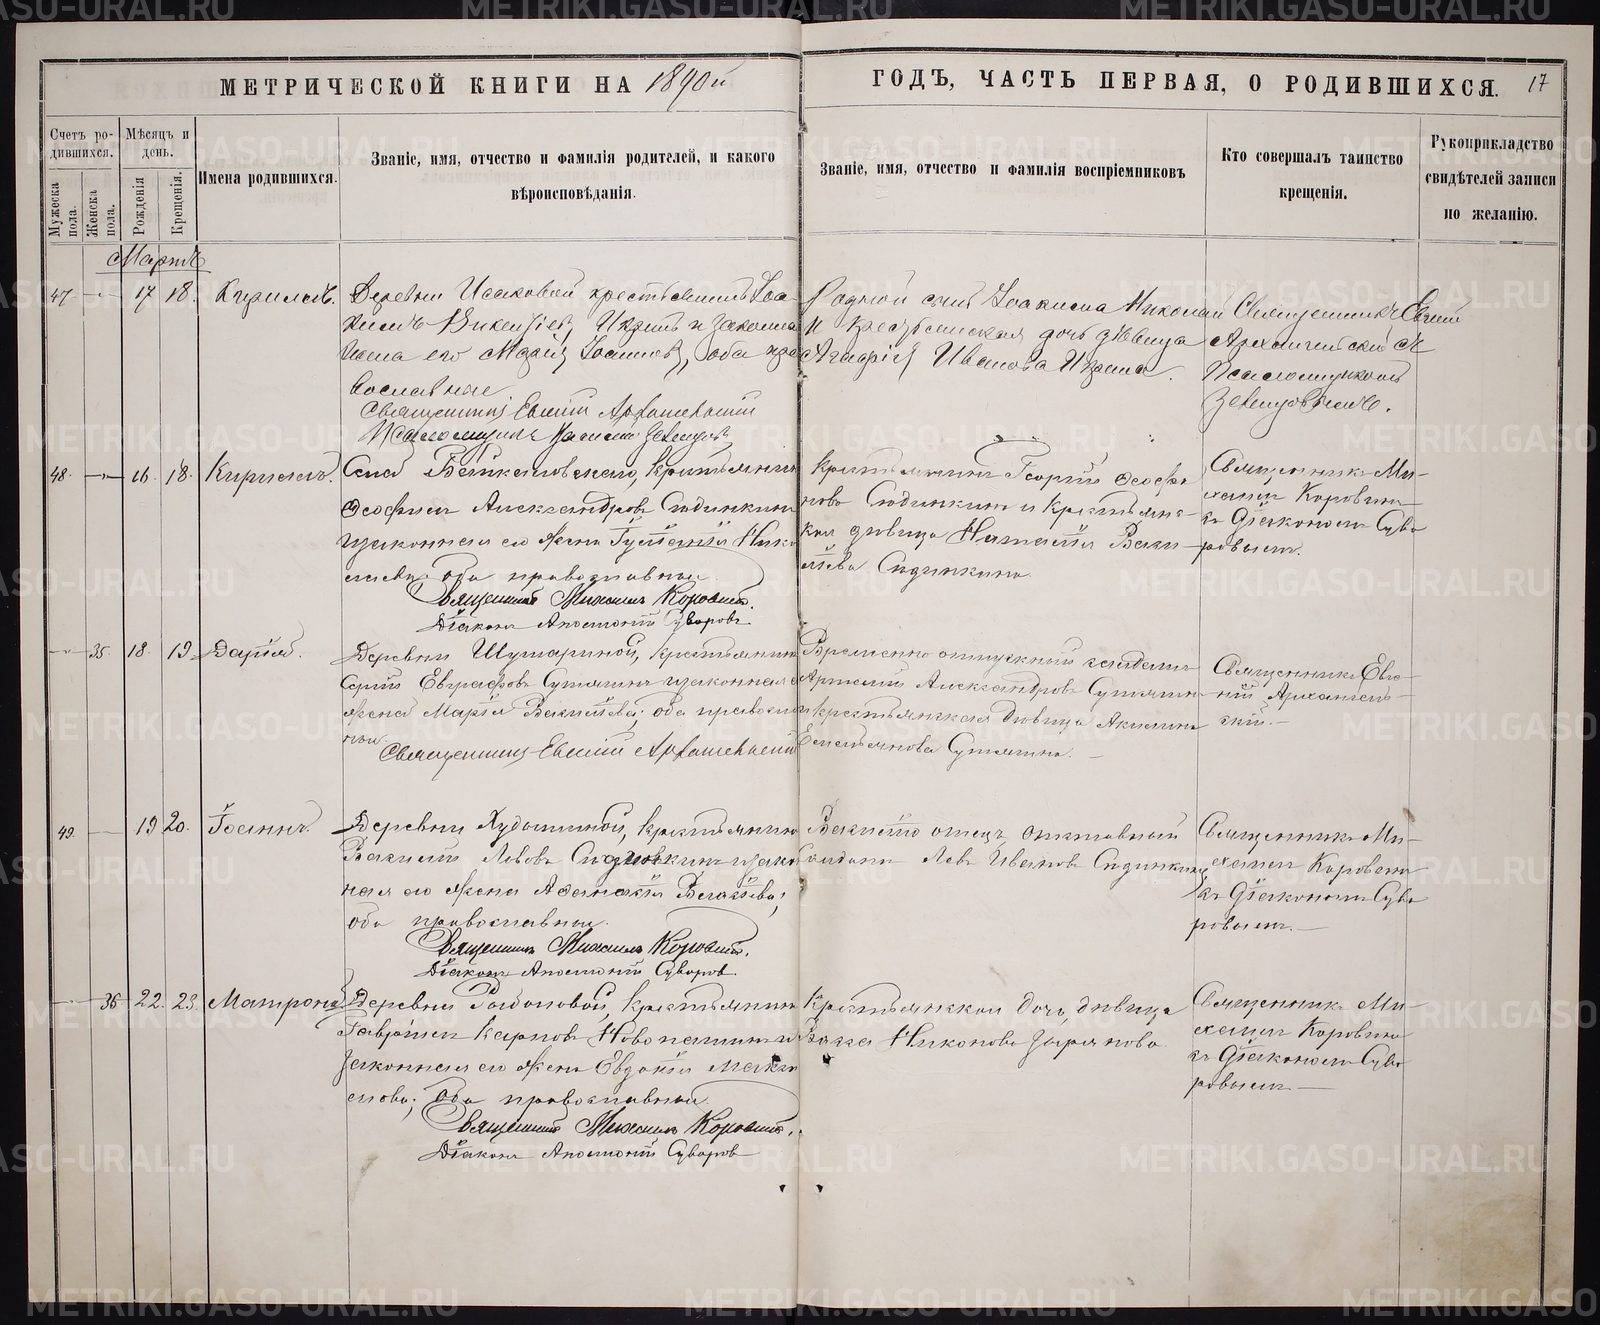 МЕТРИЧЕСКОЙ КНИГИ НА 1890й ГОДЪ, ЧАСТЬ ПЕРВАЯ, О РОДИВШИХСЯ. 17
Счетъ родившихся.
Мужеска пола.
Женска пола.
Мѣсяцъ и день.
Рожденія
Крещенія.
Имена родившихся.
Званіе, имя, отчество и фамилія родителей, и какого
вѣроисповѣданія.
Званіе, имя, отчество и фамилія воспріемниковъ
Кто совершалъ таинство
крещенія.
Рукоприкладство
свидѣтелей записи
по желанію.
Мартъ
47 17 18. Кириллъ.
Деревни Исаковой крестьянинъ Іоа-
кимъ и законная
жена его Іоаннова, оба пра
вославные
Священникъ Евгеній Архангельскій
Псаломщикъ
Родной сынъ Іоакима Николай
и крестьянская дочь дѣвица
Агафія Иванова
Священникъ Евгеній
Архангельскій съ
Псаломщикомъ
48. 16. 18. Кириллъ.
Села крестьянинъ
Ѳеофилъ Александровъ Сидинкинъ
и законная его жена Николаева; оба православные.
Священникъ Михаилъ Коровинъ.
Діаконъ Аполлоній Суворовъ.
Крестьянинъ Георгій Ѳеофи
ловъ Сидинкинъ и крестьянс-
кая дѣвица Наталія Васи-
ліева Сидинкина.
Священникъ Ми-
хаилъ Коровинъ
съ Діакономъ Суво
ровымъ.
35. 18. 19 Дарія.
Деревни Шумариной, крестьянинъ
Сергій Евграфовъ и законная его
жена Марія Васильева; оба православ
ные.
Священникъ Евгеній Архангельскій
Временно отпускный
Артемій Александровъ
и крестьянская дѣвица Акилина
Емельянова
Священникъ Евге-
ній Архангель-
скій.
49. 19 20. Іоаннъ.
Деревни крестьянинъ
Василій Львовъ Сидинкинъ и закон
ная его жена Власіева;
оба православные.
Священникъ Михаилъ Коровинъ.
Діаконъ Аполлоній Суворов.
Василія отецъ, отставный
солдатъ Левъ Ивановъ Сидинкинъ
Священникъ Ми-
хаилъ Коровинъ
съ Діакономъ Суво
ровымъ.
36 22. 23. Матрона
Деревни крестьянинъ
Гавріилъ Карповъ Новопашинъ и
законная его жена Евдокія Макси
мова; оба православные.
Священникъ Михаилъ Коровинъ.
Діаконъ Аполлоній Суворовъ
Крестьянская дочь, дѣвица
Васса Никонова Зырянова
Священникъ Ми-
хаилъ Коровинъ
съ Діакономъ Суво
ровымъ.
METRIKI.GASO-URAL.RU